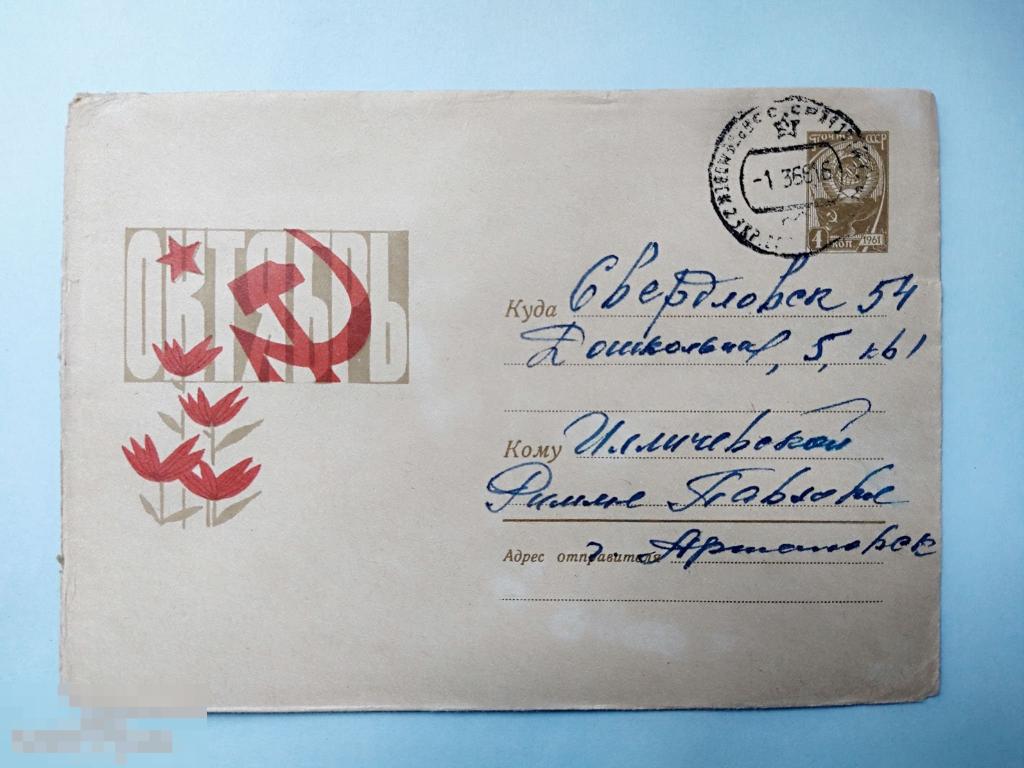 ОКТЯБРЬ
ПОЧТА СССР
-1 36616
4 КОП 1961
Куда Свердловск 54
Дошкольная, 5, кв 1
Кому Илличевской
Римме Павловне
Адрес отправителя г. Артемовск